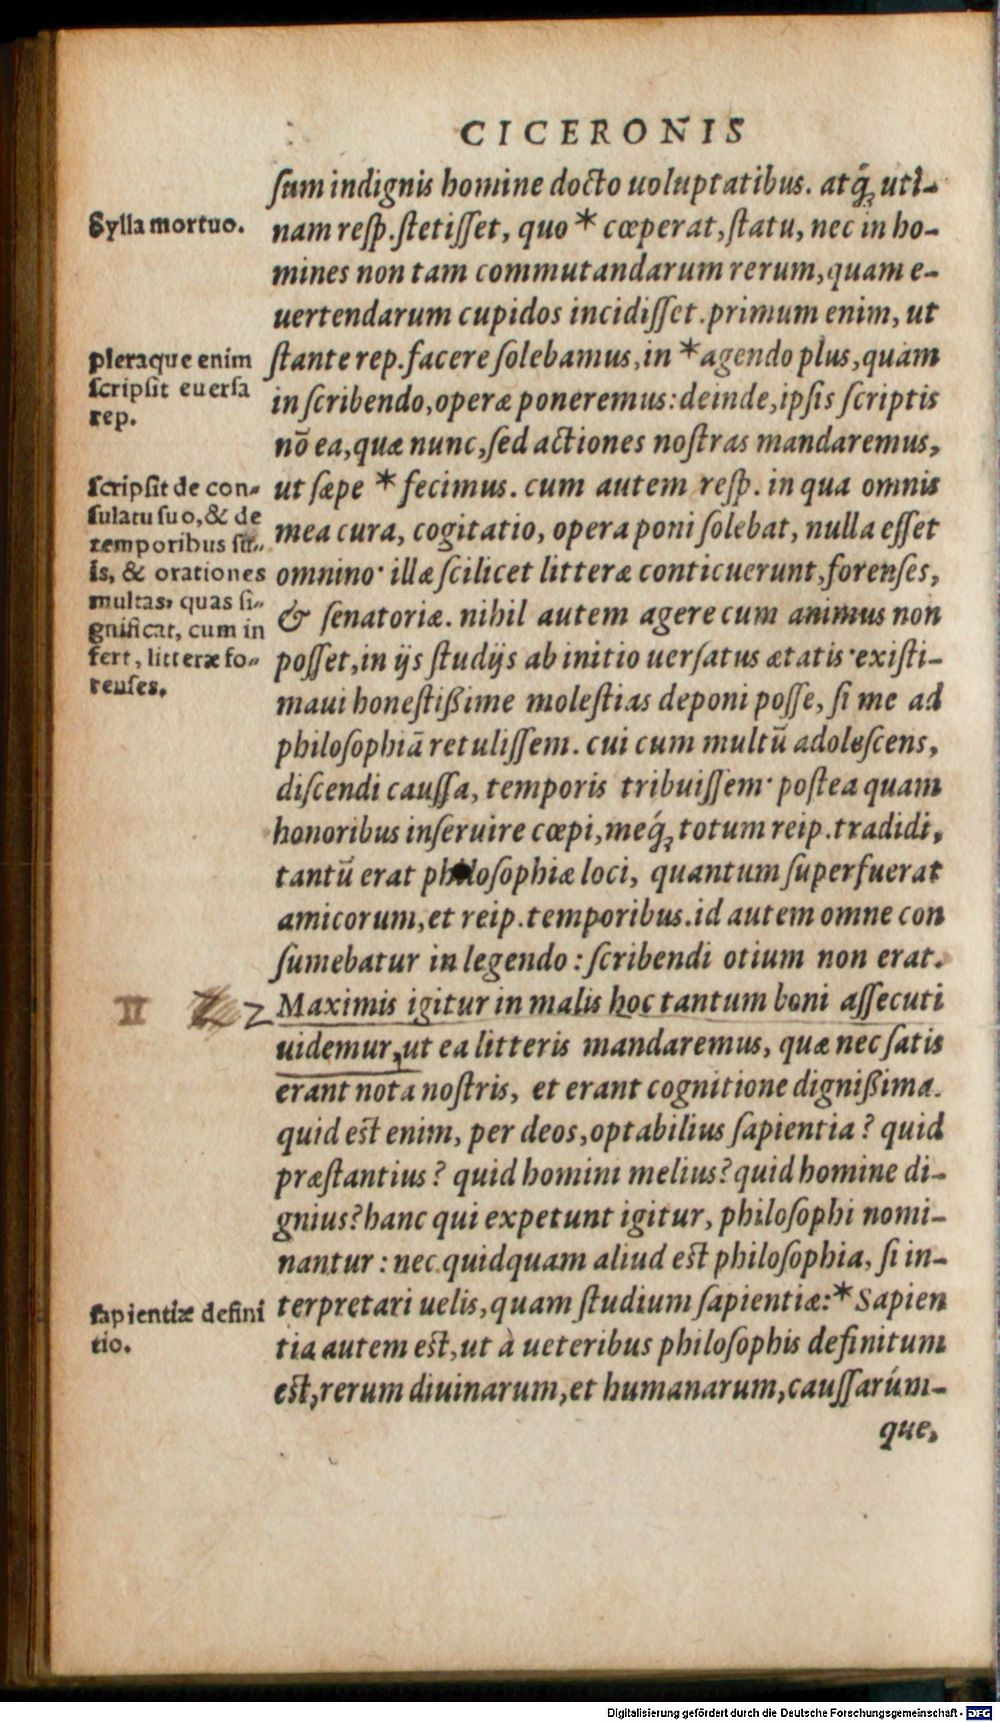 CICERONIS
sum indignis homine docto uoluptatibus. atq́; uti-
Sylla mortuo.
nam resp. stetisset, quo * cœperat, statu, nec in ho-
mines non tam commutandarum rerum, quam e-
uertendarum cupidos incidisset. primum enim, ut
pleraque enim
scripsit euersa
rep.
stante rep. facere solebamus, in * agendo plus, quam
in scribendo, operæ poneremus: deinde, ipsis scriptis
nō ea, quæ nunc, sed actiones nostras mandaremus,
scripsit de con-
sulatu suo, & de
temporibus su-
is, & orationes
multas, quas si-
gnificat, cum in
fert, litteræ fo-
renses.
ut sæpe * fecimus. cum autem resp. in qua omnis
mea cura, cogitatio, opera poni solebat, nulla esset
omnino· illæ scilicet litteræ conticuerunt, forenses,
& senatoriæ. nihil autem agere cum animus non
posset, in ijs studijs ab initio uersatus ætatis· existi-
maui honestißime molestias deponi posse, si me ad
philosophiā retulissem. cui cum multū adolescens,
discendi caussa, temporis tribuissem· postea quam
honoribus inseruire cœpi, meq́; totum reip. tradidi,
tantū erat philosophiæ loci, quantum superfuerat
amicorum, et reip. temporibus. id autem omne con
sumebatur in legendo: scribendi otium non erat.
II
2
Maximis igitur in malis hoc tantum boni assecuti
uidemur, ut ea litteris mandaremus, quæ nec satis
erant nota nostris, et erant cognitione dignißima.
quid est enim, per deos, optabilius sapientia? quid
præstantius? quid homini melius? quid homine di-
gnius? hanc qui expetunt igitur, philosophi nomi-
nantur: nec quidquam aliud est philosophia, si in-
sapientiæ defini
tio.
terpretari uelis, quam studium sapientiæ: * Sapien
tia autem est, ut à ueteribus philosophis definitum
est, rerum diuinarum, et humanarum, caussarúm-
que,
Digitalisierung gefördert durch die Deutsche Forschungsgemeinschaft - DFG